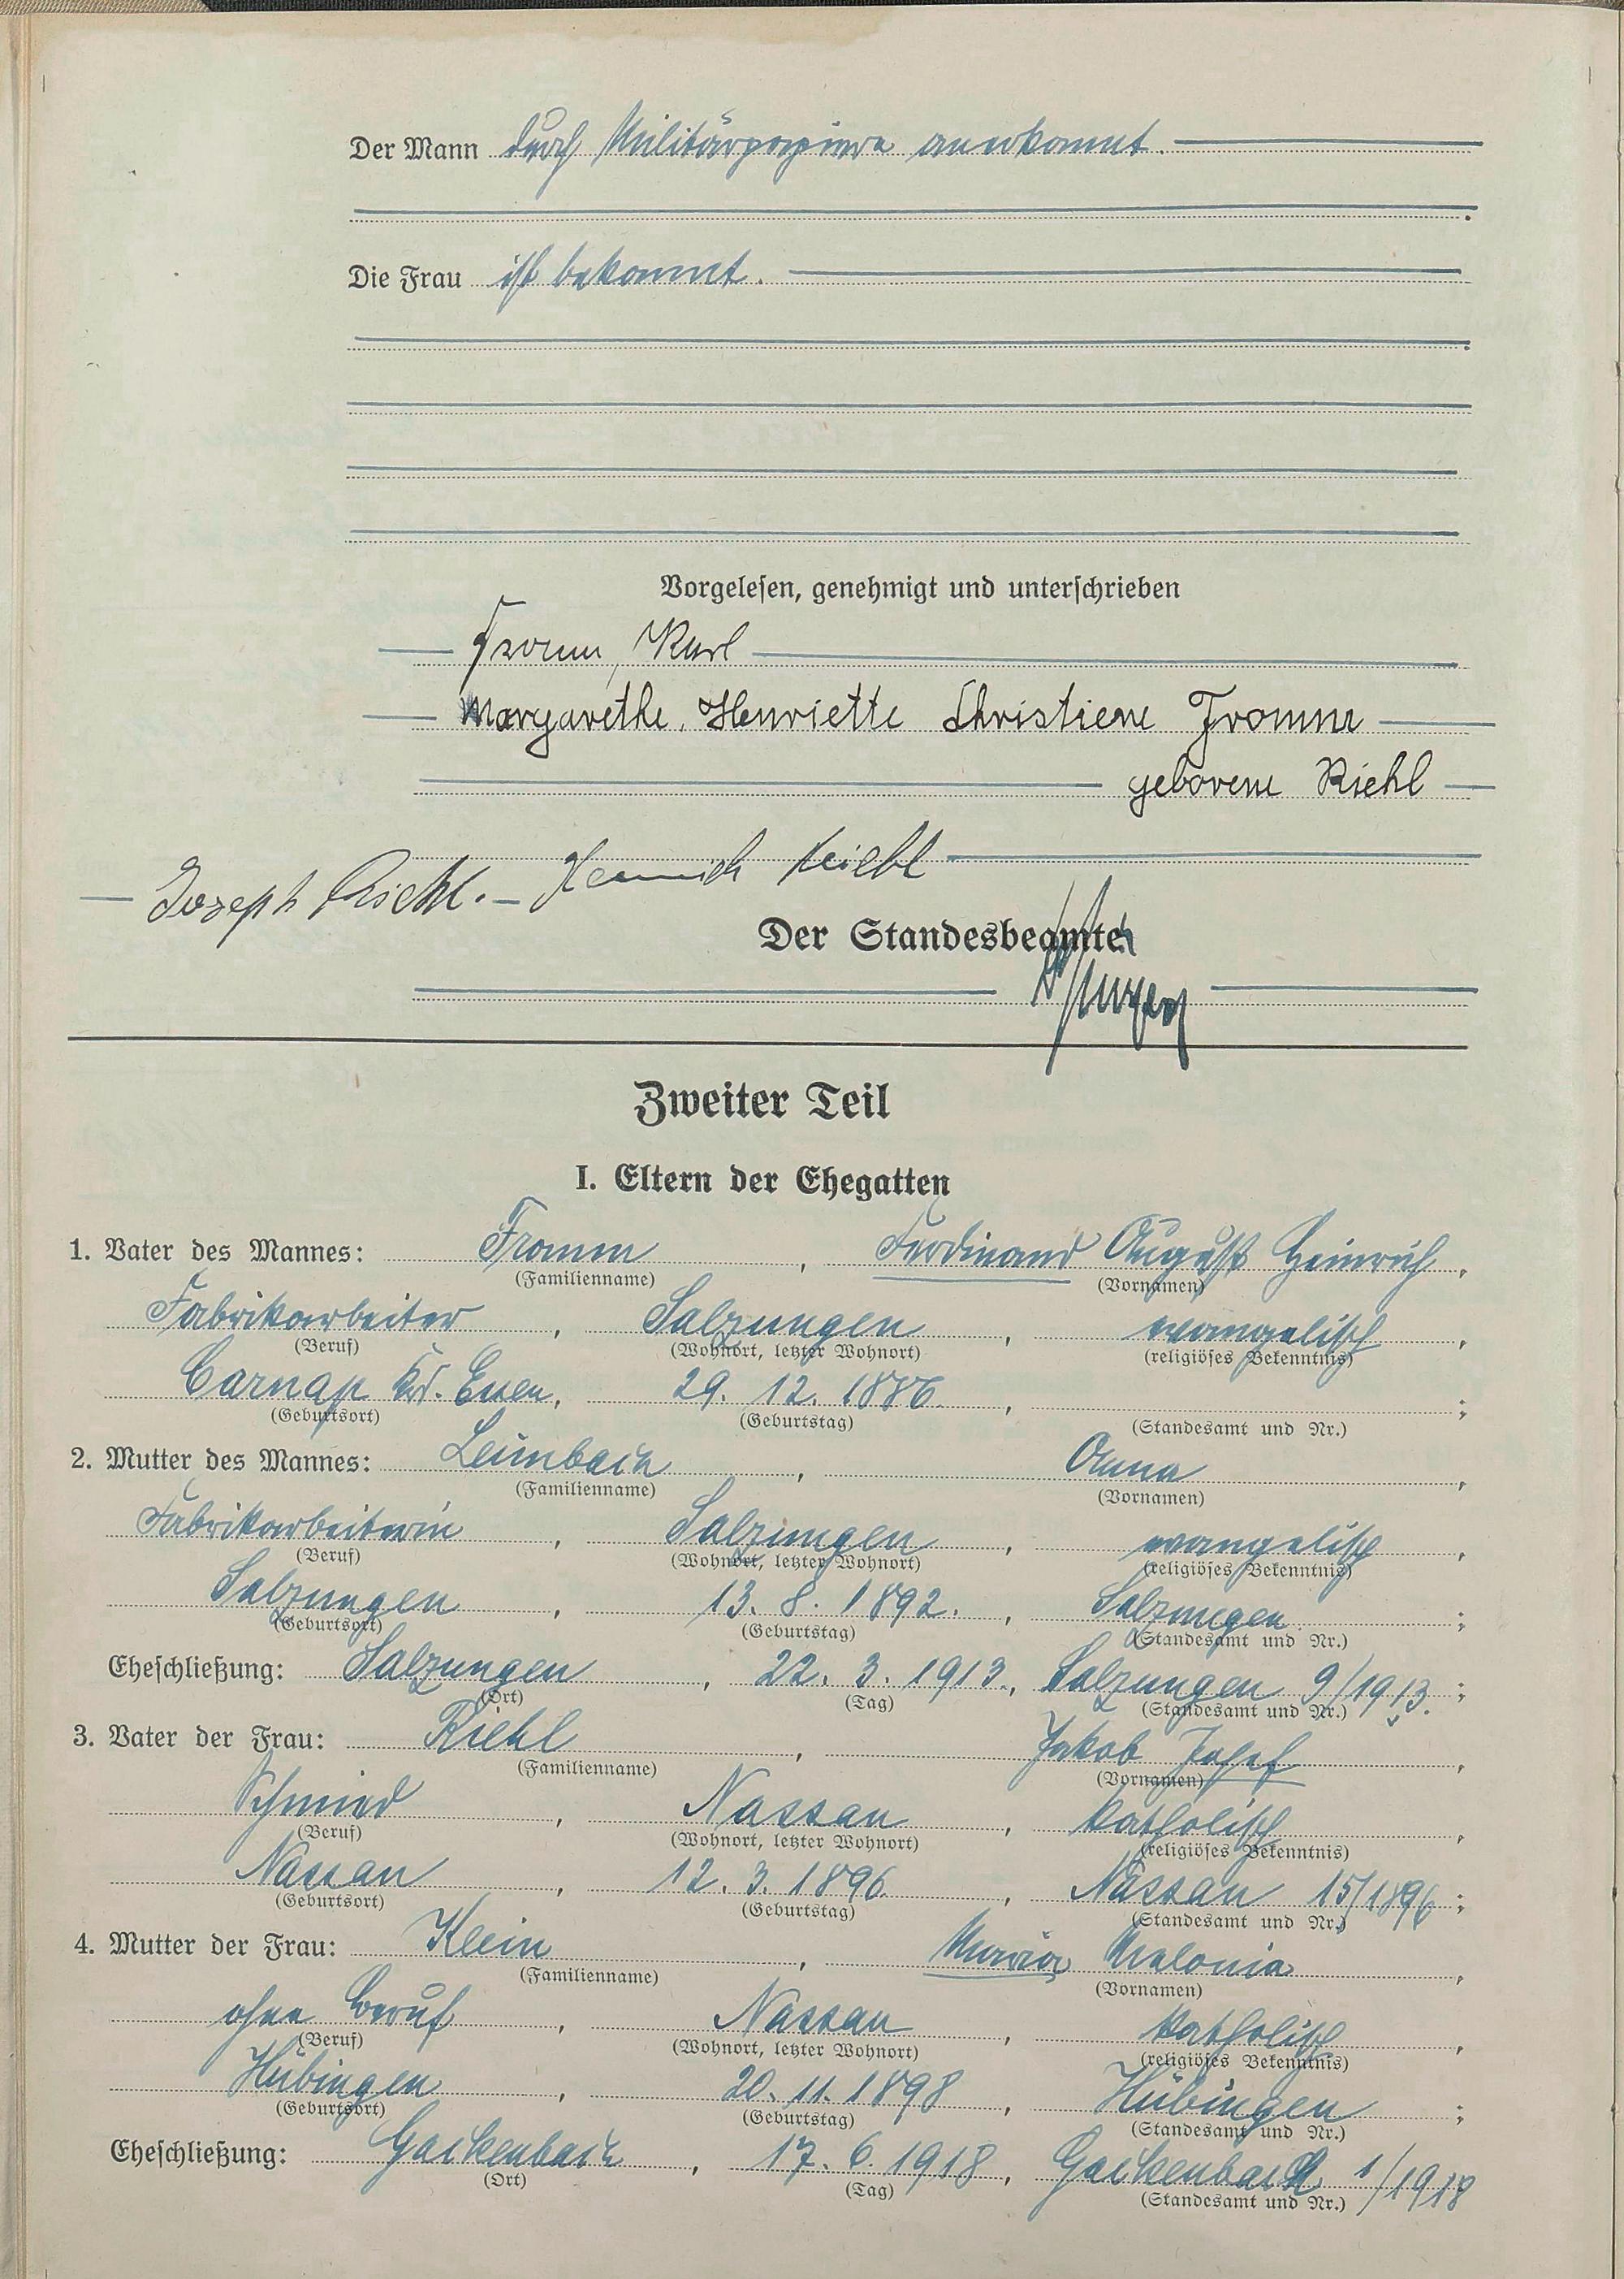 Der Mann durch Militärpapiere anerkannt.
Die Frau ist bekannt.
Vorgelesen, genehmigt und unterschrieben
Fromm, Karl
Margarethe, Henriette Christiene Fromm
geborene Riehl
Joseph Riehl. Heinrich Riehl
Der Standesbeamte
Zweiter Teil
I. Eltern der Ehegatten
1. Vater des Mannes: Fromm, Ferdinand August Heinrich,
(Familienname) (Vornamen)
Fabrikarbeiter, Salzungen, evangelisch,
(Beruf) (Wohnort, letzter Wohnort) (religiöses Bekenntnis)
Carnap Krs. Essen, 29. 12. 1886,
(Geburtsort) (Geburtstag) (Standesamt und Nr.) ;
2. Mutter des Mannes: Leimbach, Anna,
(Familienname) (Vornamen)
Fabrikarbeiterin, Salzungen, evangelisch,
(Beruf) (Wohnort, letzter Wohnort) (religiöses Bekenntnis)
Salzungen, 13. 8. 1892., Salzungen ;
(Geburtsort) (Geburtstag) (Standesamt und Nr.)
Eheschließung: Salzungen, 22. 3. 1913., Salzungen 9/1913. ;
(Ort) (Tag) (Standesamt und Nr.)
3. Vater der Frau: Riehl, Jakob Josef,
(Familienname) (Vornamen)
Schmied, Nassau, katholisch,
(Beruf) (Wohnort, letzter Wohnort) (religiöses Bekenntnis)
Nassau, 12. 3. 1896, Nassau 15/1896 ;
(Geburtsort) (Geburtstag) (Standesamt und Nr.)
4. Mutter der Frau: Klein, Maria Melonia,
(Familienname) (Vornamen)
ohne Beruf, Nassau, katholisch,
(Beruf) (Wohnort, letzter Wohnort) (religiöses Bekenntnis)
Hübingen, 20. 11. 1898, Hübingen ;
(Geburtsort) (Geburtstag) (Standesamt und Nr.)
Eheschließung: Gackenbach, 17. 6. 1918, Gackenbach 1/1918
(Ort) (Tag) (Standesamt und Nr.)